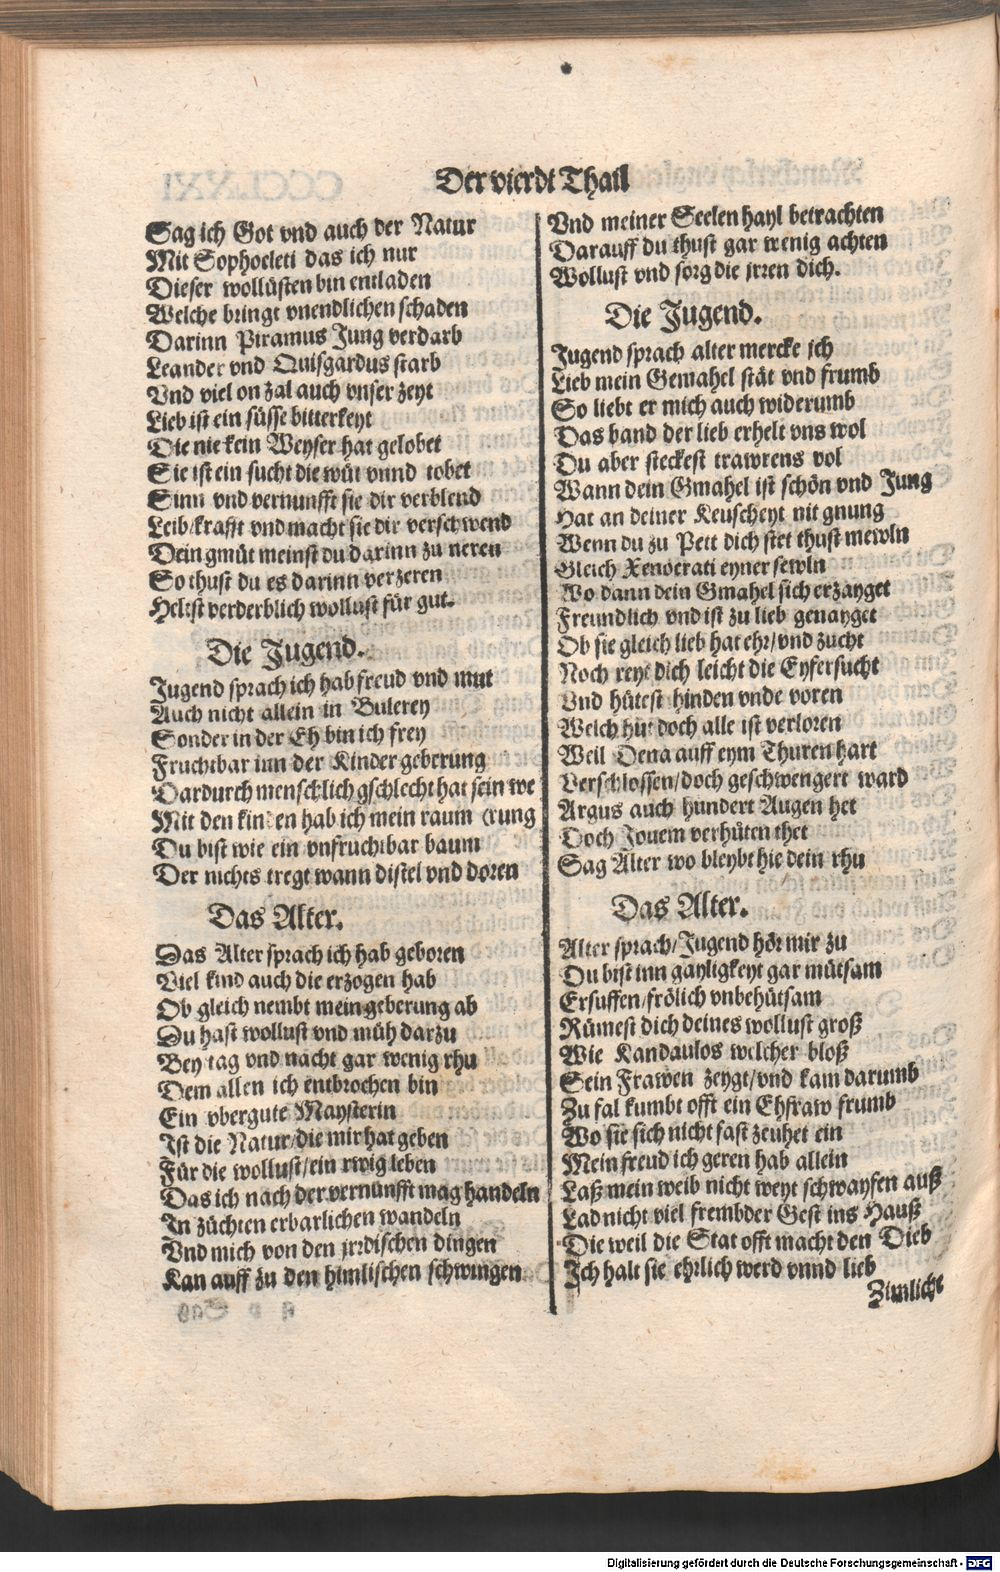 Der vierdt Thail
Sag ich Got vnd auch der Natur
Mit Sophocleti das ich nur
Dieser wollüsten bin entladen
Welche bringt vnendlichen schaden
Darinn Piramus Jung verdarb
Leander vnd Quisgardus starb
Vnd viel on zal auch vnser zeyt
Lieb ist ein süsse bitterkeyt
Die nie kein Weyser hat gelobet
Sie ist ein sucht die wüt vnnd tobet
Sinn vnd vernunfft sie dir verblend
Leib/krafft vnd macht sie dir verschwend
Dein gmüt meinst du darinn zu neren
So thust du es darinn verzeren
Heltst verderblich wollust für gut.
Die Jugend.
Jugend sprach ich hab freud vnd mut
Auch nicht allein in Bulerey
Sonder in der Eh bin ich frey
Fruchtbar inn der Kinder geberung
Dardurch menschlich gschlecht hat sein we
Mit den kinden hab ich mein raum (rung
Du bist wie ein vnfruchtbar baum
Der nichts tregt wann distel vnd doren
Das Alter.
Das Alter sprach ich hab geboren
Viel kind auch die erzogen hab
Ob gleich nembt mein geberung ab
Du hast wollust vnd müh darzu
Bey tag vnd nacht gar wenig rhu
Dem allen ich entbrochen bin
Ein vbergute Maysterin
Ist die Natur/die mir hat geben
Für die wollust/ein ewig leben
Das ich nach der vernunfft mag handeln
In züchten erbarlichen wandeln
Vnd mich von den jrrdischen dingen
Kan auff zu den himlischen schwingen
Vnd meiner Seelen hayl betrachten
Darauff du thust gar wenig achten
Wollust vnd sorg die jrren dich.
Die Jugend.
Jugend sprach alter mercke ich
Lieb mein Gemahel stät vnd frumb
So liebt er mich auch widerumb
Das band der lieb erhelt vns wol
Du aber steckest trawrens vol
Wann dein Gmahel ist schön vnd Jung
Hat an deiner Keuscheyt nit gnung
Wenn du zu Pett dich stet thust mewln
Gleich Xenocrati eyner sewln
Wo dann dein Gmahel sich erzayget
Freundlich vnd ist zu lieb genayget
Ob sie gleich lieb hat ehr/vnd zucht
Noch reyt dich leicht die Eyfersucht
Vnd hütest hinden vnde voren
Welch hut doch alle ist verloren
Weil Dena auff eym Thuren hart
Verschlossen/doch geschwengert ward
Argus auch hundert Augen het
Doch Jouem verhüten thet
Sag Alter wo bleybt hie dein rhu
Das Alter.
Alter sprach/Jugend hör mir zu
Du bist inn gayligkeyt gar mütsam
Ersuffen/frölich vnbehütsam
Rümest dich deines wollust groß
Wie Kandaulos welcher bloß
Sein Frawen zeygt/vnd kam darumb
Zu fal kumbt offt ein Ehfraw frumb
Wo sie sich nicht fast zeuhet ein
Mein freud ich geren hab allein
Laß mein weib nicht weyt schwayfen auß
Lad nicht viel frembder Gest ins Hauß
Die weil die Stat offt macht den Dieb
Ich halt sie ehrlich werd vnnd lieb
Zimlicht
Digitalisierung gefördert durch die Deutsche Forschungsgemeinschaft - DFG